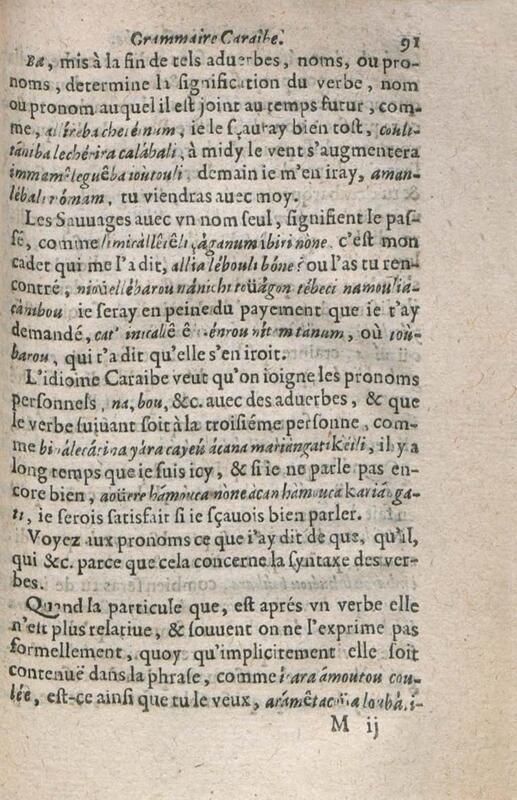 Grammaire Caraibe. 91
Ba, mis à la fin de tels aduerbes, noms, ou pro-
noms, determine la signification du verbe, nom
ou pronom auquel il est joint au temps futur, com-
me, ie le sçauray bien tost, coulï-
tāniba lechérira calábali, à midy le vent s'augmentera
immamêleguêba ioutouli, demain ie m'en iray, aman-
lébali rómam, tu viendras auec moy.
Les Sauuages auec vn nom seul, signifient le pas-
sé, comme c'est mon
cadet qui me l'a dit, allia lébouli bóne? ou l'as tu ren-
contré, tébeci namoulia-
cāmbou ie seray en peine du payement que ie t'ay
demandé, où ioü-
barou, qui t'a dit qu'elle s'en iroit.
L'idiome Caraibe veut qu'on ioigne les pronoms
personnels, na, bou, &c. auec des aduerbes, & que
le verbe suiuant soit à la troisiéme personne, com-
me yára cayeu ácana mariangati kétli, il y a
long temps que ie suis icy, & si ie ne parle pas en-
core bien, aoüerre hámouca nóne ácan hámouca kariāga-
ti, ie serois satisfait si ie sçauois bien parler.
Voyez aux pronoms ce que i'ay dit de que, qu'il,
qui &c. parce que cela concerne la syntaxe des ver-
bes.
Quand la particule que, est aprés vn verbe elle
n'est plus relatiue, & souuent on ne l'exprime pas
formellement, quoy qu'implicitement elle soit
contenuë dans la phrase, comme ámoutou cou-
lée, est-ce ainsi que tu le veux, loubà, i-
M ij